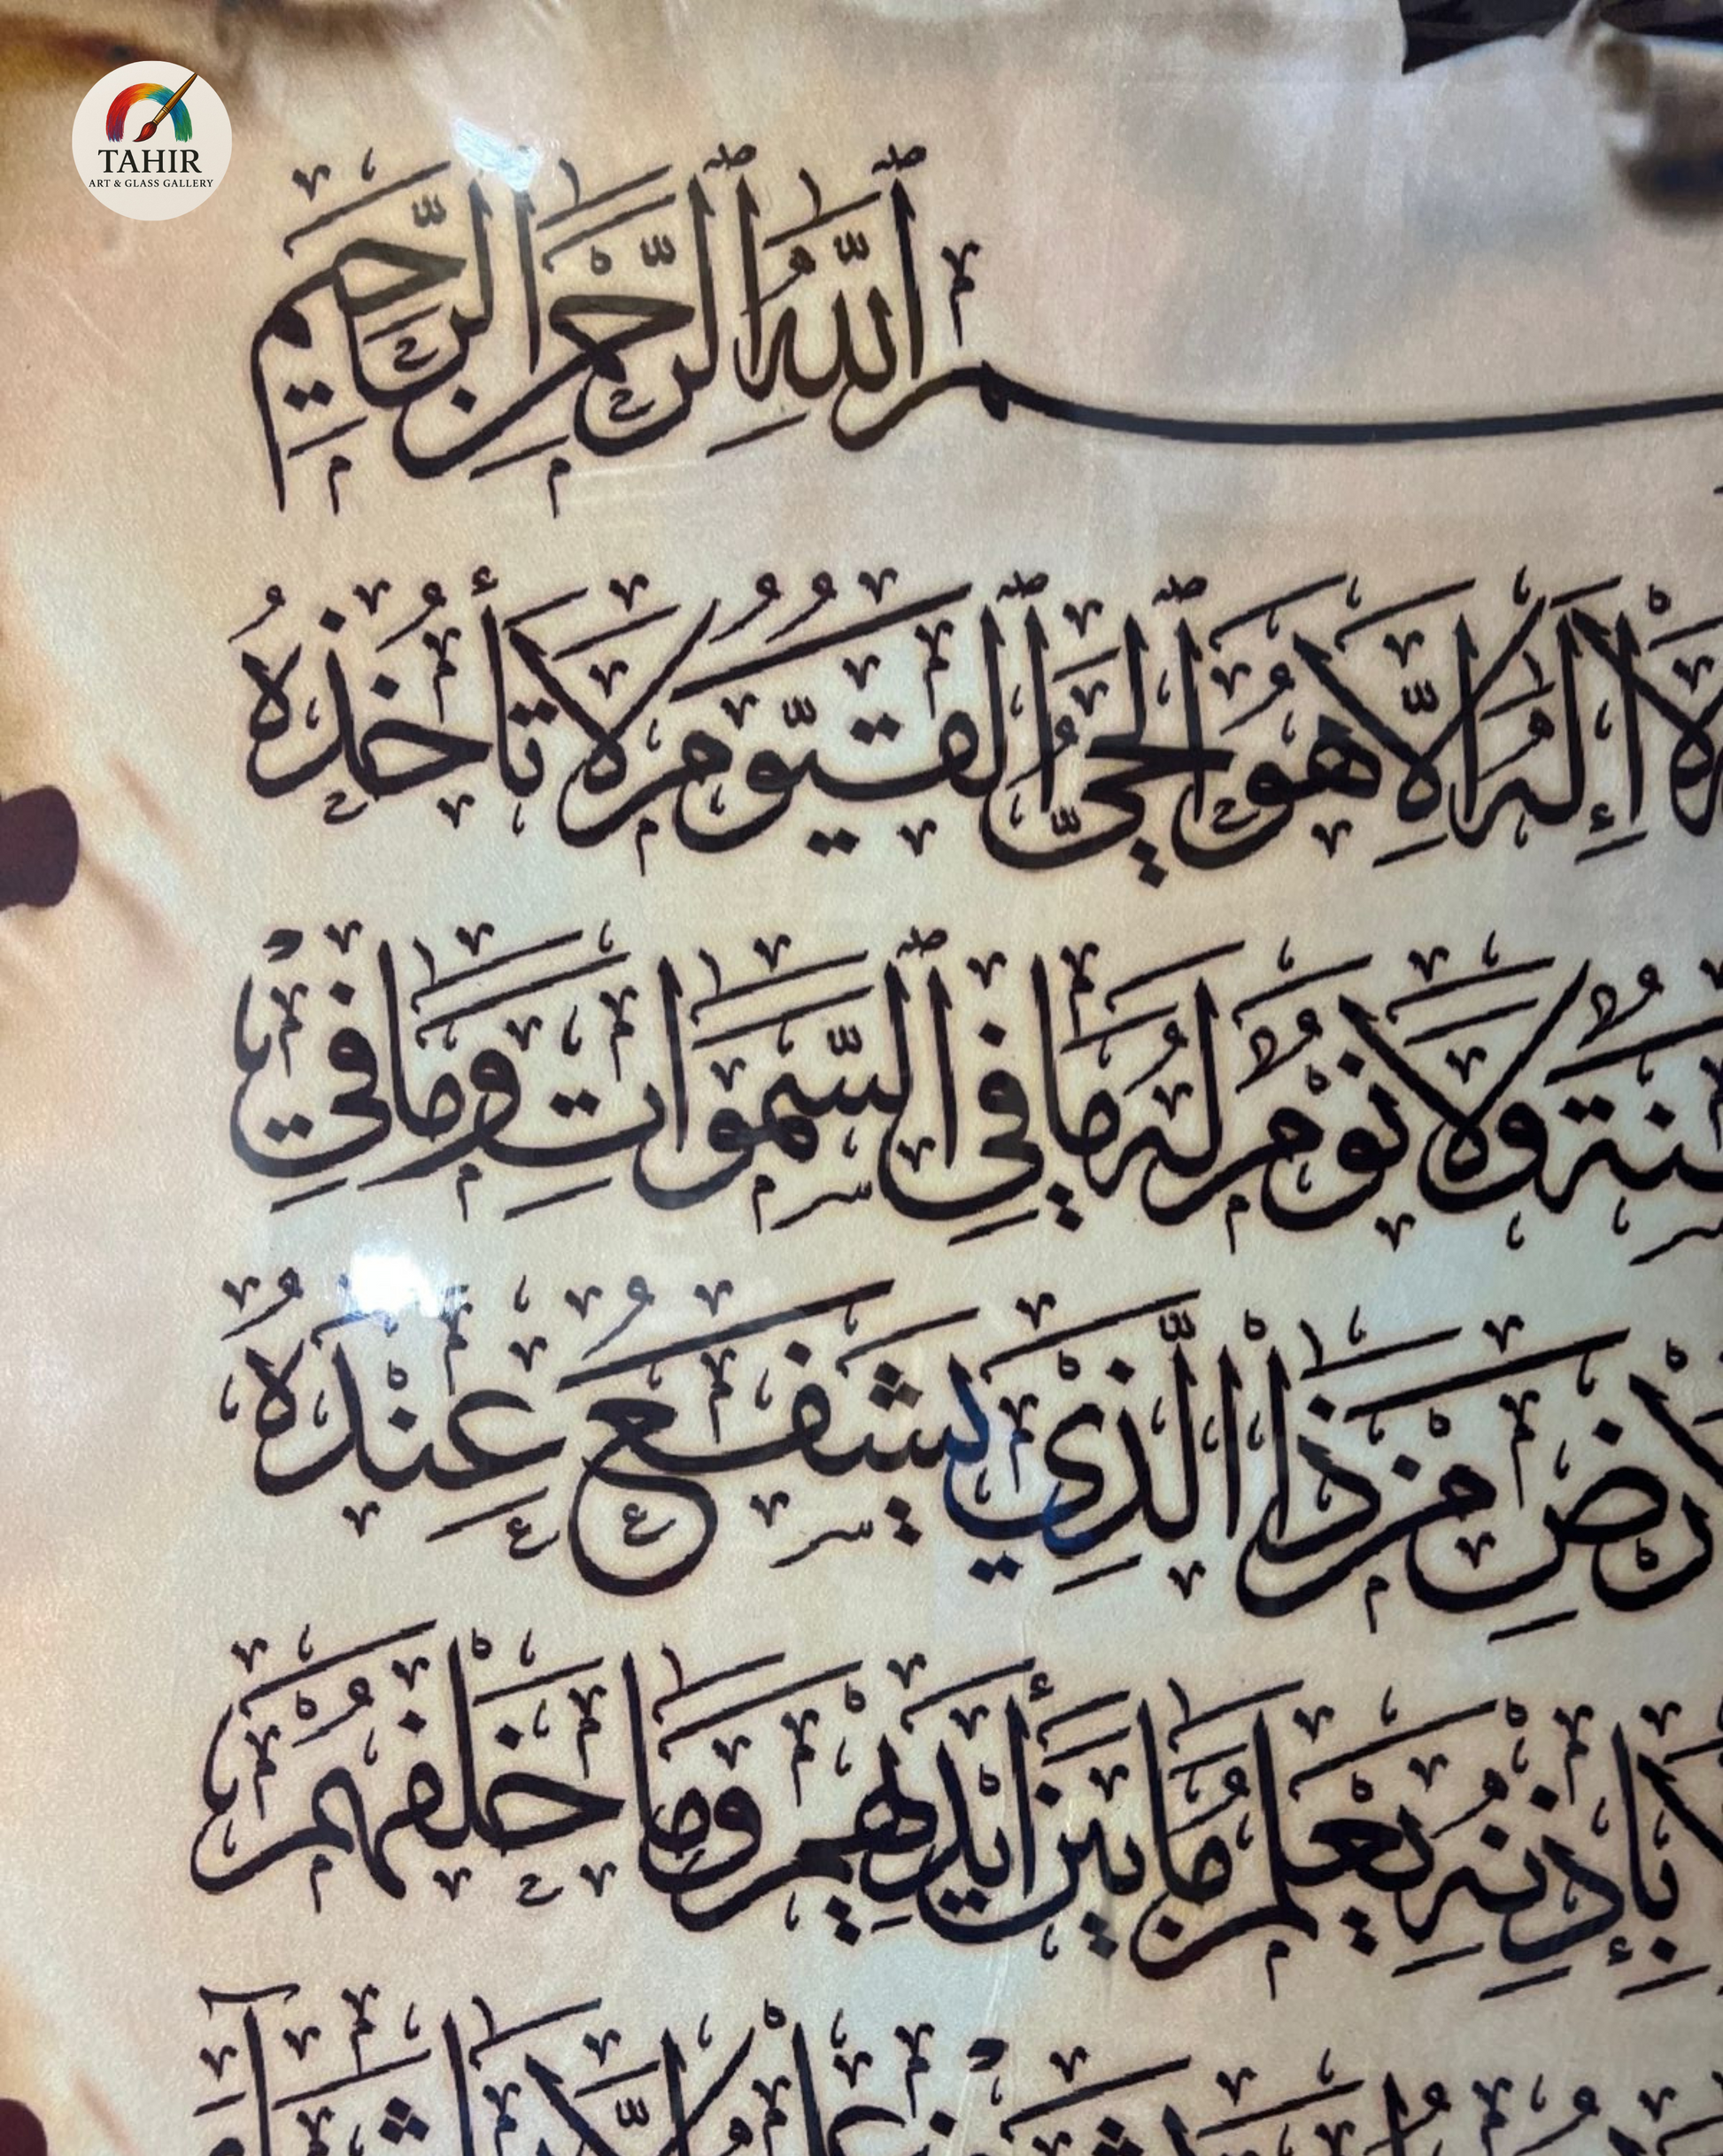 TAHIR
ART & GLASS GALLERY
ٱللَّهِ ٱلرَّحْمَٰنِ ٱلرَّحِيمِ
لَا إِلَٰهَ إِلَّا هُوَ ٱلْحَيُّ ٱلْقَيُّومُ لَا تَأْخُذُهُ
وَلَا نَوْمٌ لَهُ مَا فِي ٱلسَّمَٰوَاتِ وَمَا فِي
مَنْ ذَا الَّذِي يَشْفَعُ عِنْدَهُ
بِإِذْنِهِ يَعْلَمُ مَا بَيْنَ أَيْدِيهِمْ وَمَا خَلْفَهُمْ